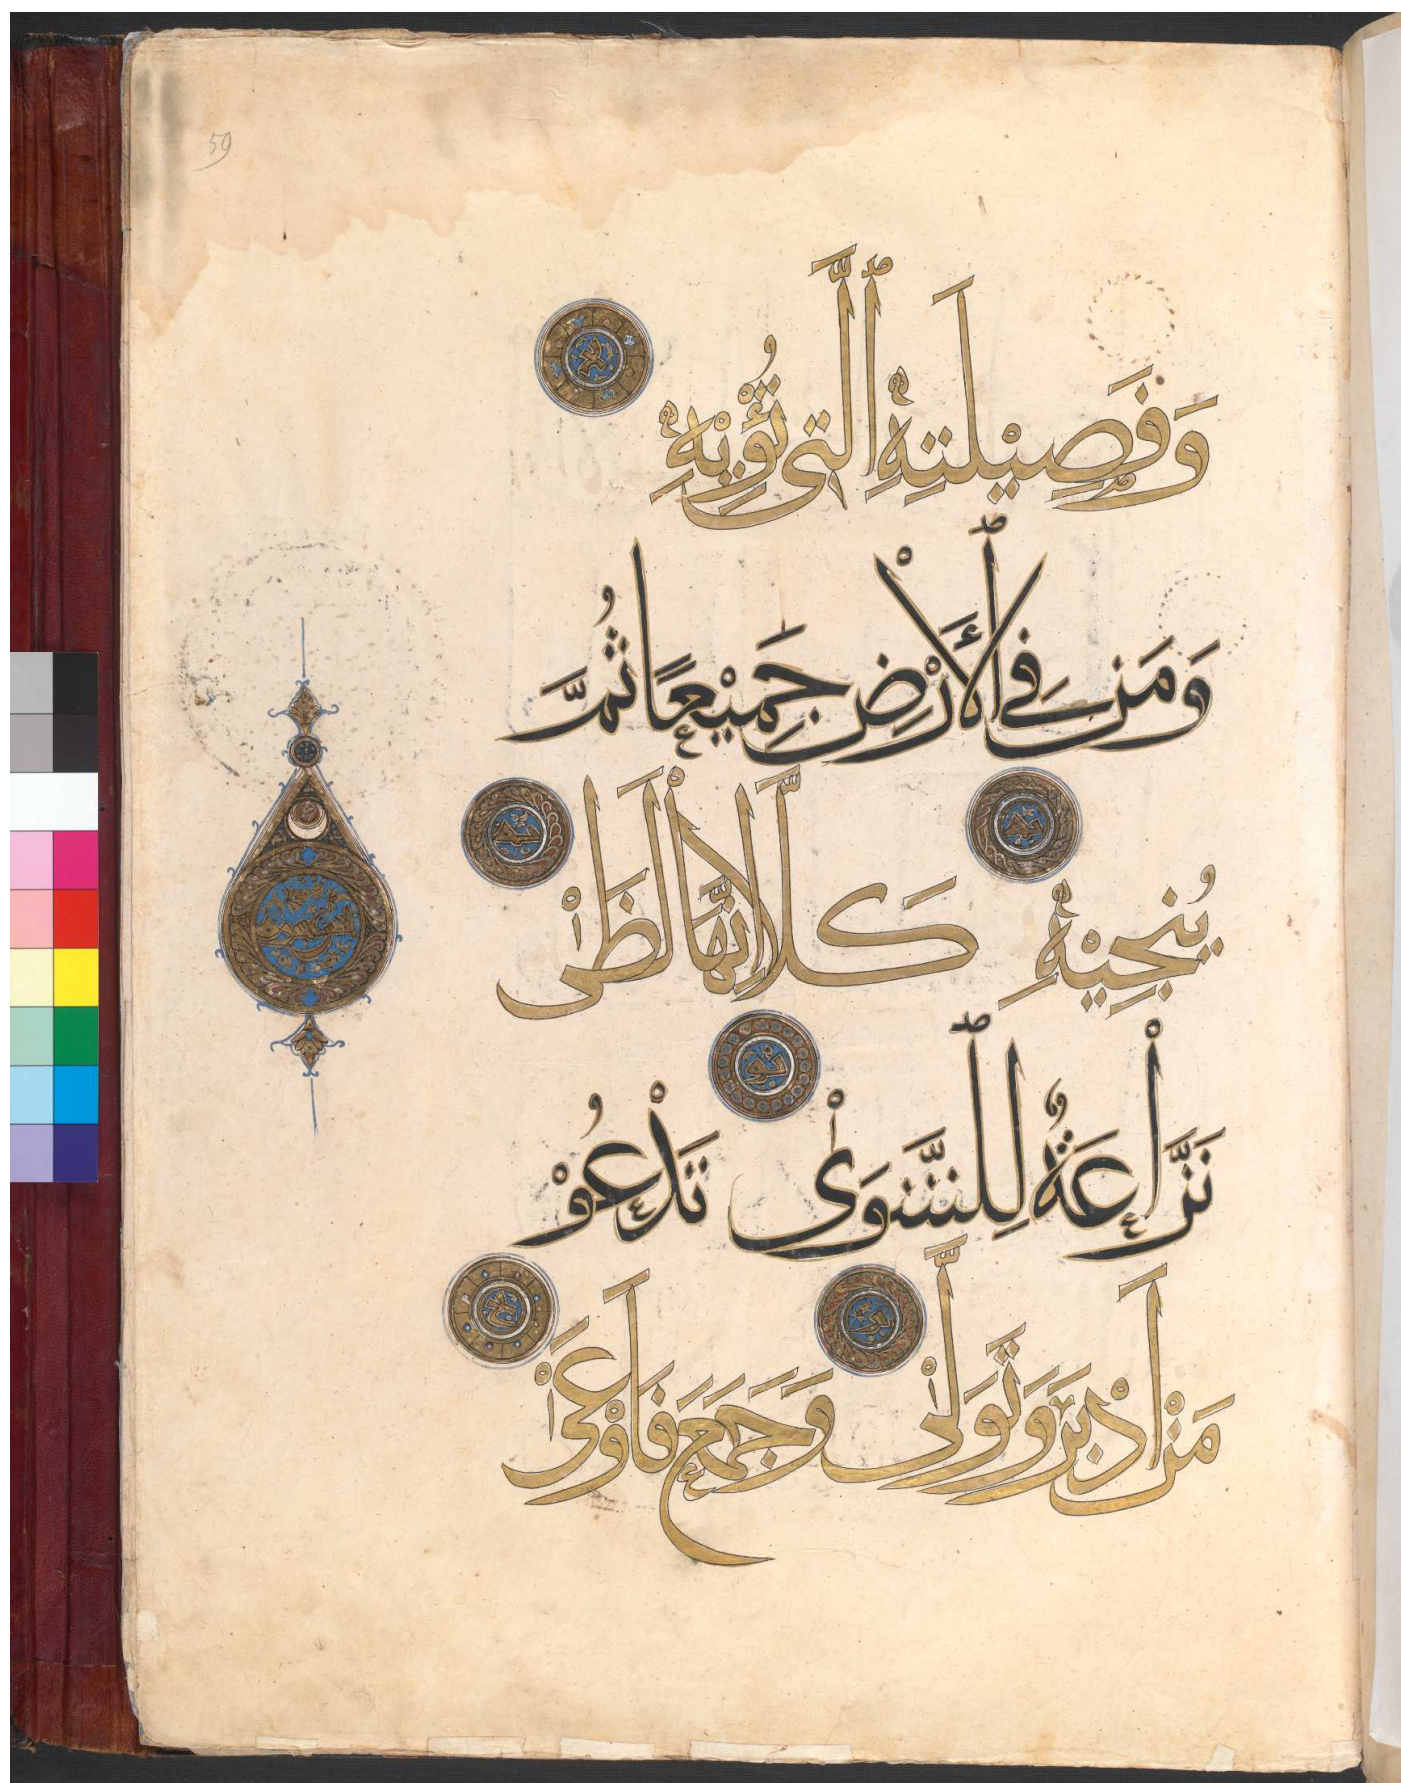 59
وَفَصِيْلَتِهِ ٱلَّتِى تُؤْبِهِ
وَمَنْ فِي ٱلْأَرْضِ جَمِيْعًا ثُمَّ
يُنْجِيْهِ كَلَّا إِنَّهَا لَظٰى
نَزَّاعَةٌ لِلشَّوٰى تَدْعُوْ
مَنْ اَدْبَرَ وَتَوَلّٰى وَجَمَعَ فَاَوْعٰى